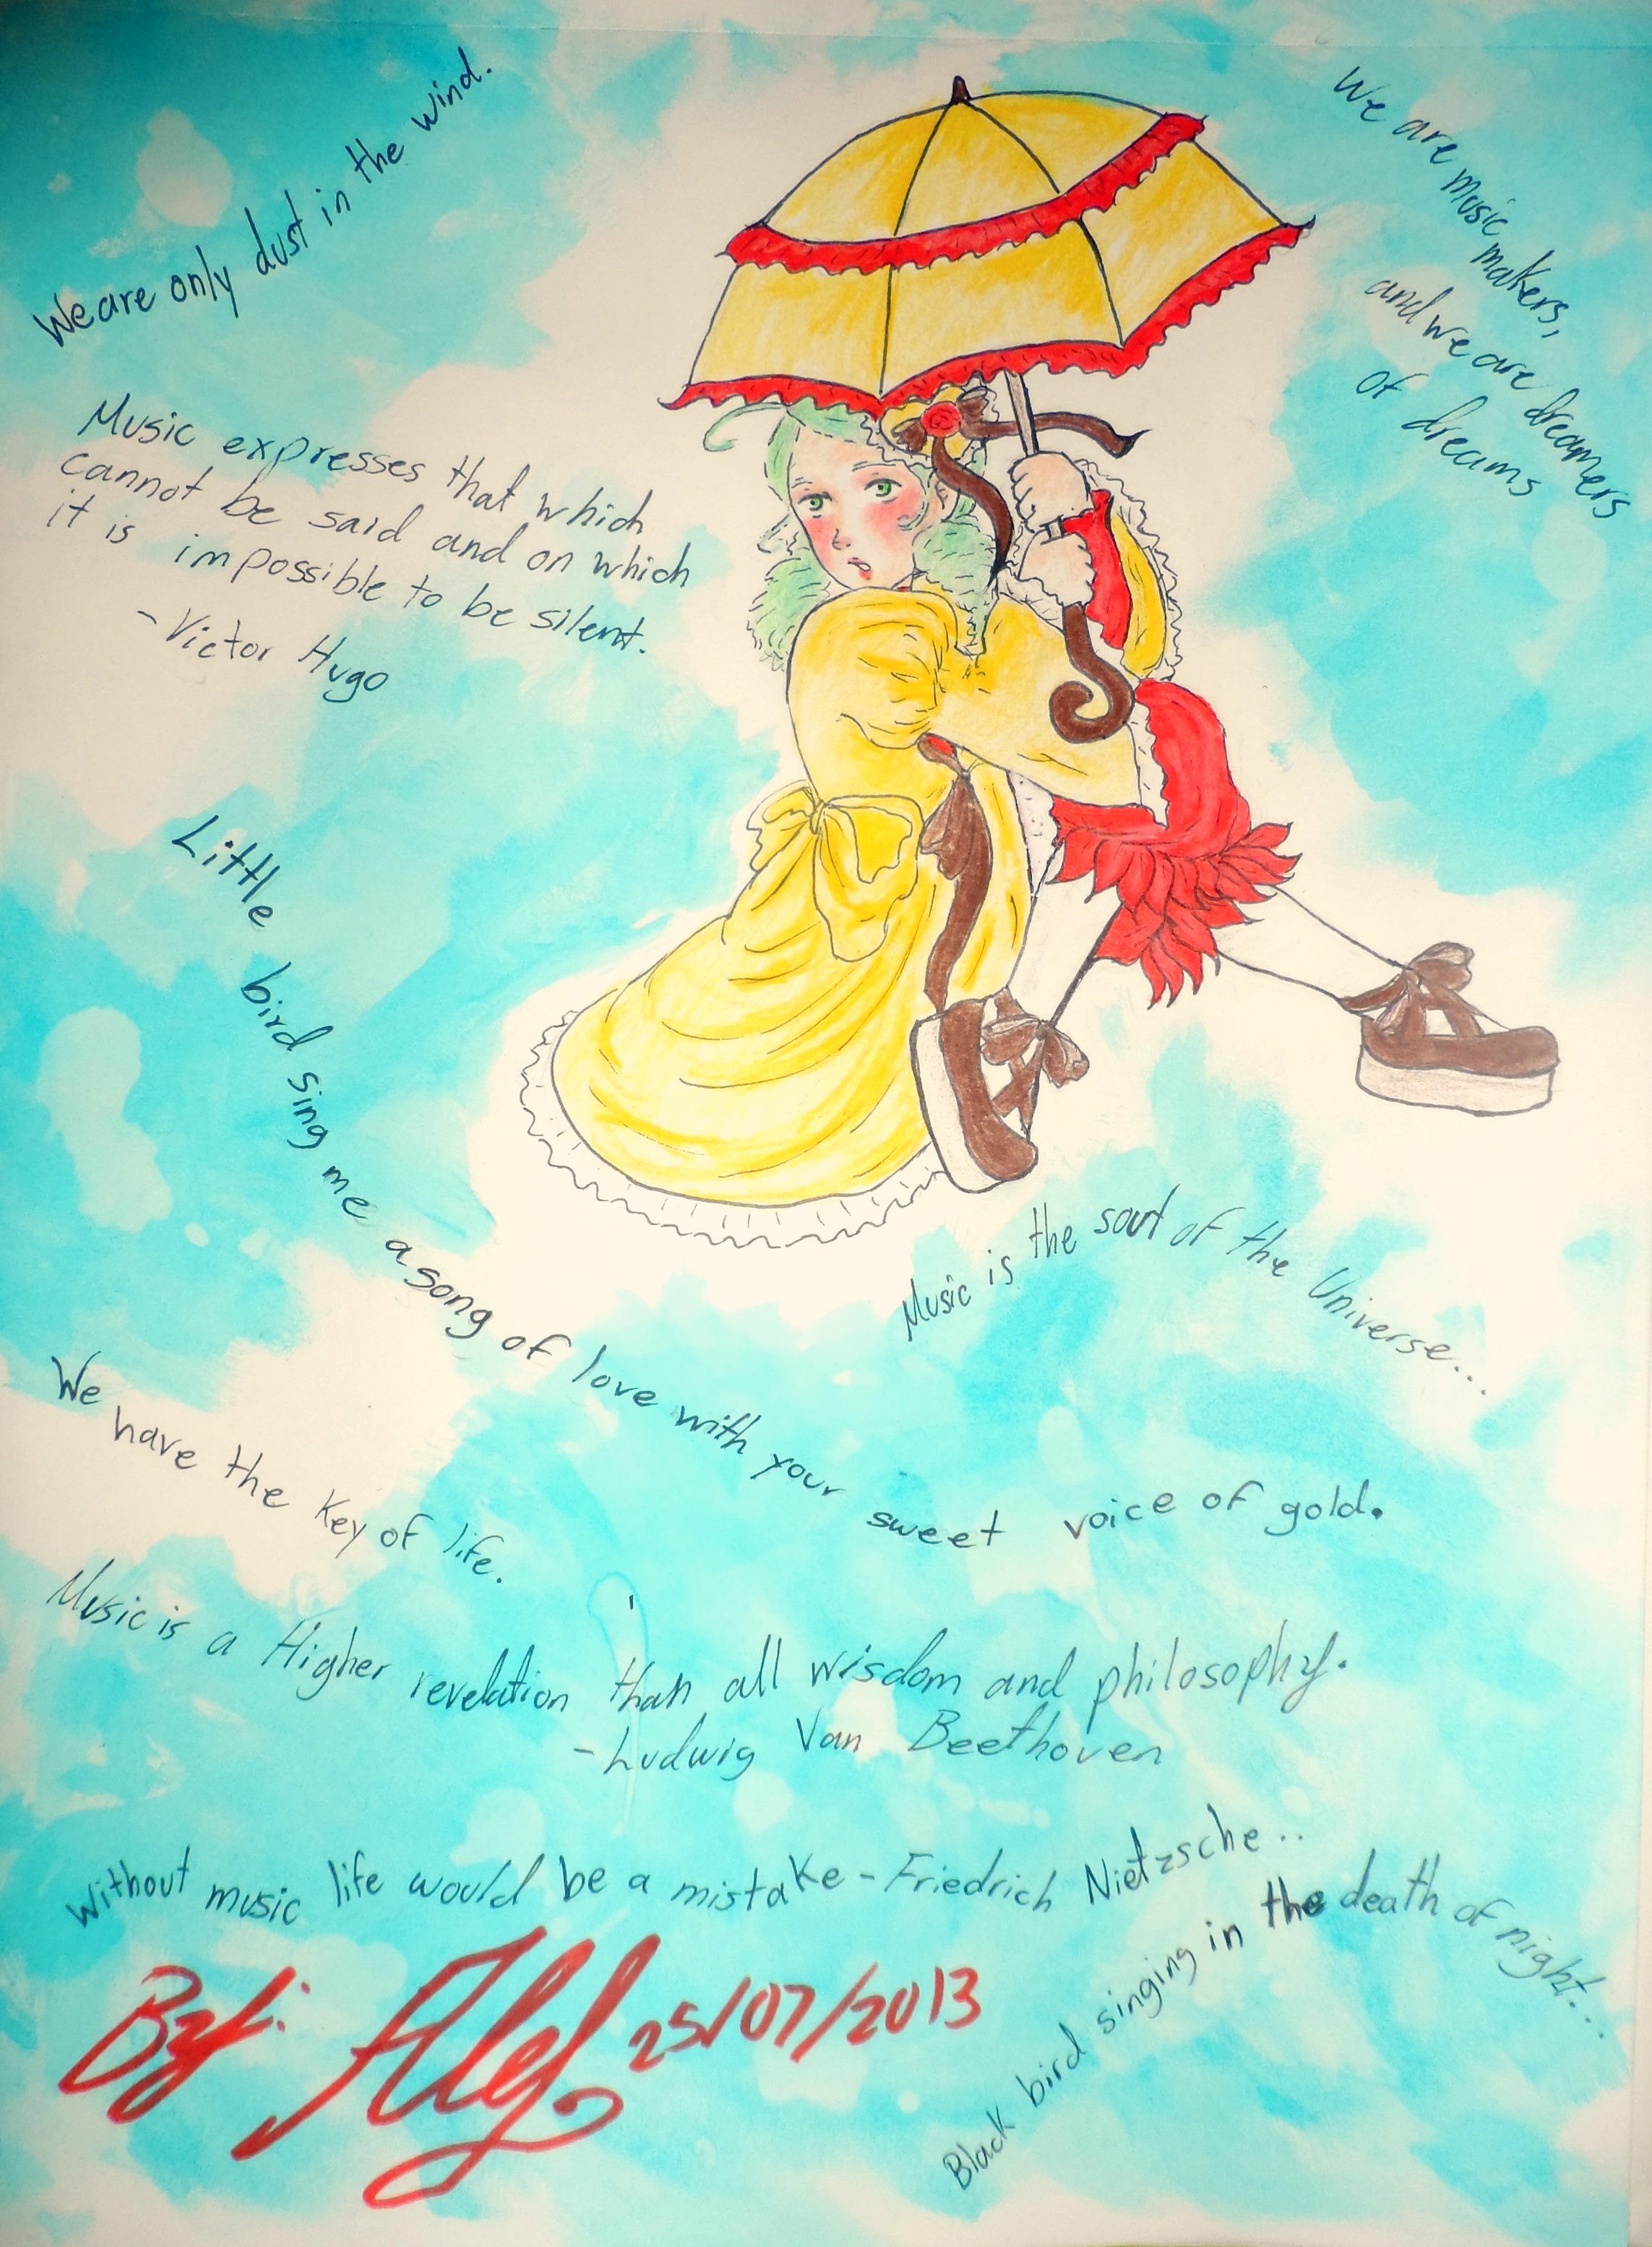 We are only dust in the wind.
We are music
makers,
and we are dreamers
of dreams
Music expresses that which
cannot be said and on which
it is impossible to be silent.
-Victor Hugo
Little bird sing me a song of love with your sweet voice of gold.
Music is the soul of the Universe...
We have the key of life.
Music is a Higher revelation than all wisdom and philosophy.
-Ludwig Van Beethoven
Without music life would be a mistake - Friedrich Nietzsche..
Black bird singing in the death of night...
By: 25/07/2013